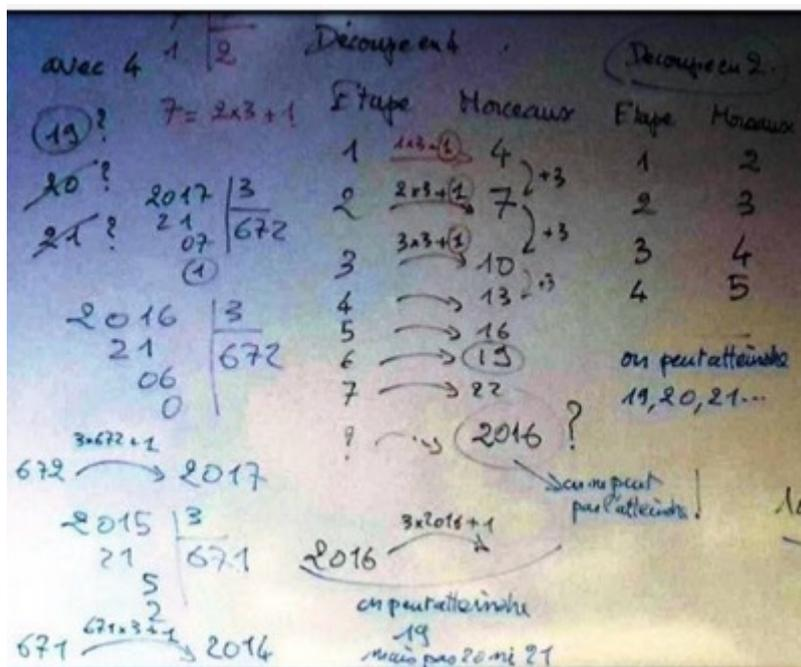 avec 4
1 | 2
7 = 2x3+1
19 ?
20 ?
21 ?
2017 | 3
21 672
07
1
2016 | 3
21 672
06
0
3x672+1
672 → 2017
2015 | 3
21 671
5
2
671x3+1
671 → 2014
Découpe en 4
Etape Morceaux
1 1x3+1 4
+3
2 2x3+1 7
+3
3 3x3+1 10
+3
4 → 13
5 → 16
6 → 19
7 → 22
? → 2016 ?
on ne peut
pas l'atteindre !
3x2016+1
2016 →
on peut atteindre
19
mais pas 20 ni 21
Découpe en 2
Etape Morceaux
1 2
2 3
3 4
4 5
on peut atteindre
19, 20, 21...